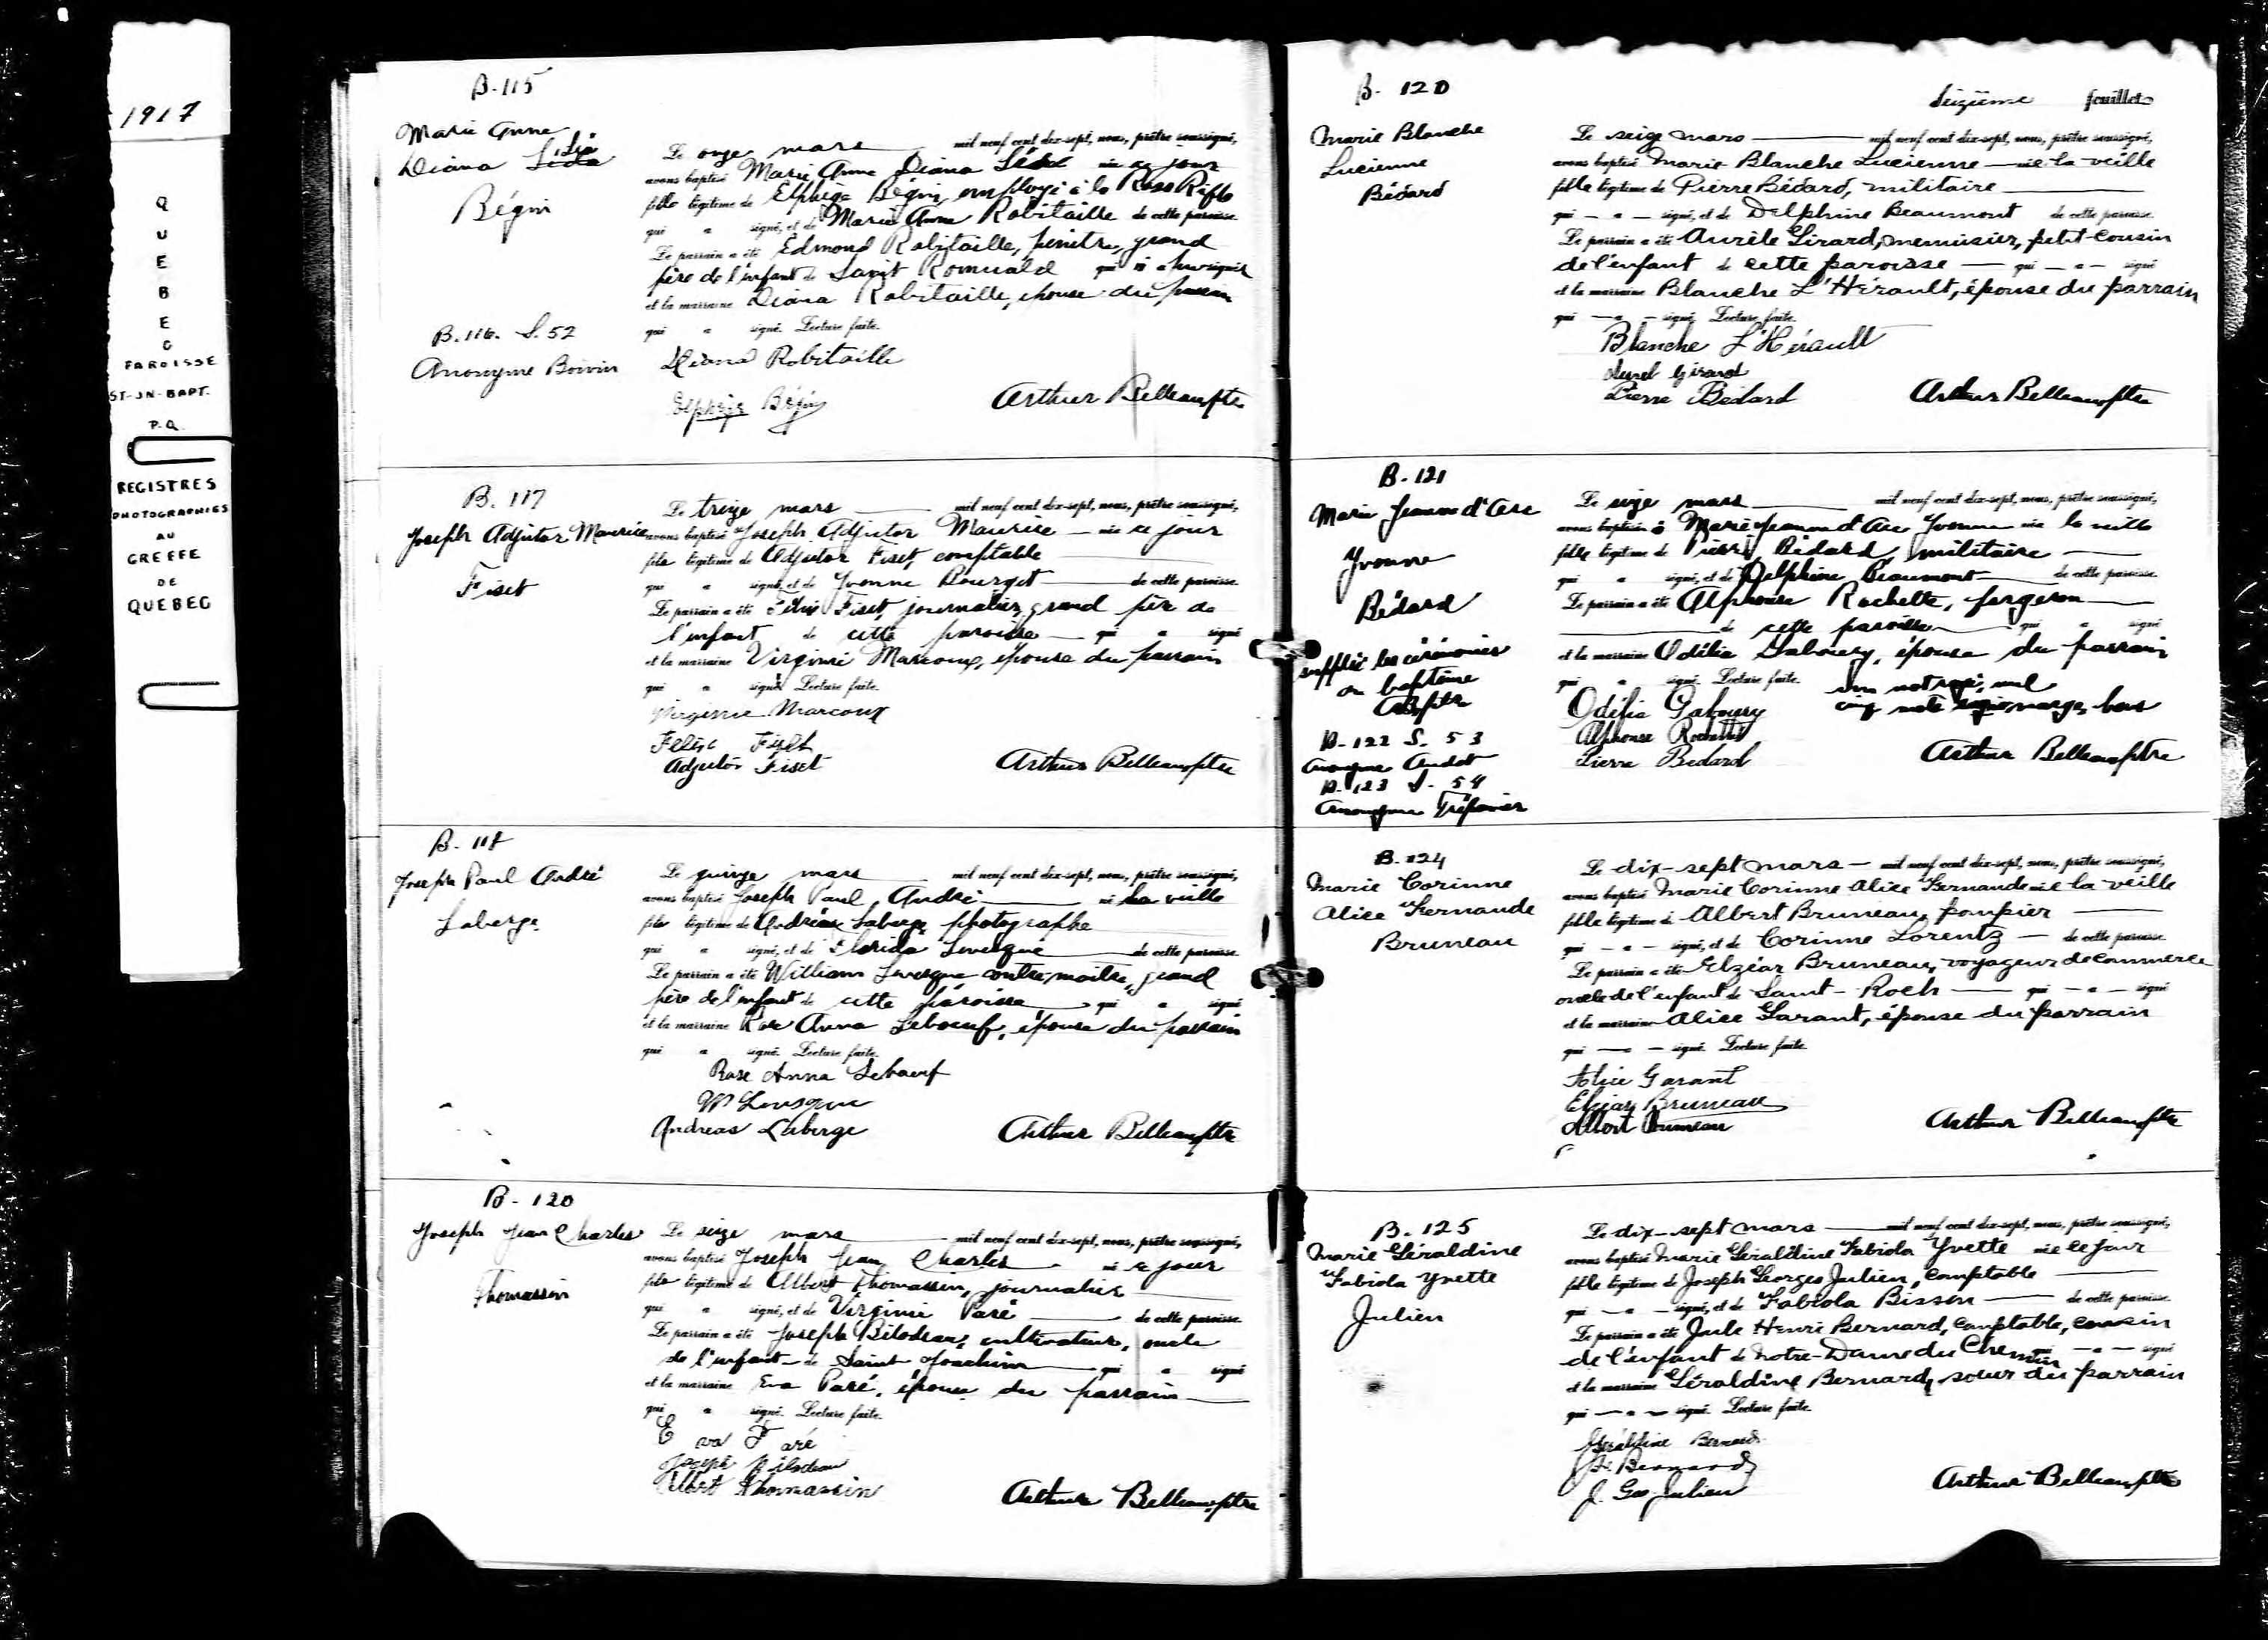 1917
QUEBEC
PAROISSE
ST-JN-BAPT.
P.Q.
REGISTRES
PHOTOGRAPHIES
AU
GREFFE
DE
QUEBEC
B-115
Marie Anne
Diana Léda
Bégin
B.116. S.52
Anonyme Boivin
Le onze mars mil neuf cent dix-sept, nous, prêtre soussigné,
avons baptisé Marie Anne Diana née ce jour
fille légitime de Elphège Bégin, employé à la Ross Rifle
qui a signé, et de Marie Anne Robitaille de cette paroisse.
Le parrain a été Edmond Robitaille, peintre, grand
père de l'enfant de Saint Romuald qui
et la marraine Diana Robitaille, épouse du parrain
qui a signé. Lecture faite.
Diana Robitaille
Elphège Bégin
Arthur Belleau, ptre
B. 117
Joseph Adjutor Maurice
Fiset
Le treize mars mil neuf cent dix-sept, nous, prêtre soussigné,
avons baptisé Joseph Adjutor Maurice né ce jour
fils légitime de Adjutor Fiset, comptable
qui a signé, et de Yvonne Bourget de cette paroisse.
Le parrain a été Félix Fiset, journalier, grand père de
l'enfant de cette paroisse qui a signé
et la marraine Virginie Marcoux, épouse du parrain
qui a signé Lecture faite.
Virginie Marcoux
Felix Fiset
Adjutor Fiset
Arthur Belleau, ptre
B-118
Joseph Paul André
Laberge
Le quinze mars mil neuf cent dix-sept, nous, prêtre soussigné,
avons baptisé Joseph Paul André né la veille
fils légitime de Andréas Laberge photographe
qui a signé, et de Florida Levesque de cette paroisse.
Le parrain a été William Levesque contre-maître, grand
père de l'enfant de cette paroisse qui a signé
et la marraine Rose Anna Leboeuf, épouse du parrain
qui a signé. Lecture faite.
Rose Anna Leboeuf
Wm Levesque
Andreas Laberge
Arthur Belleau, ptre
B-120
Joseph Jean Charles
Thomassin
Le seize mars mil neuf cent dix-sept, nous, prêtre soussigné,
avons baptisé Joseph Jean Charles né ce jour
fils légitime de Albert Thomassin, journalier
qui a signé, et de Virginie Paré de cette paroisse.
Le parrain a été Joseph Bilodeau, cultivateur, oncle
de l'enfant de Saint Joachim qui a signé
et la marraine Eva Paré, épouse du parrain
qui a signé. Lecture faite.
Eva Paré
Joseph Bilodeau
Albert Thomassin
Arthur Belleau, ptre
B- 120
Marie Blanche
Lucienne
Bédard
seizième feuillet
Le seize mars mil neuf cent dix-sept, nous, prêtre soussigné,
avons baptisé Marie Blanche Lucienne née la veille
fille légitime de Pierre Bédard, militaire
qui - a - signé, et de Delphine Beaumont de cette paroisse.
Le parrain a été Aurèle Girard, menuisier, petit-cousin
de l'enfant de cette paroisse qui - a - signé
et la marraine Blanche L'Hérault, épouse du parrain
qui - a - signé. Lecture faite.
Blanche L'Hérault
Aurel Girard
Pierre Bédard
Arthur Belleau, ptre
B-121
Marie Jeanne d'Arc
Yvonne
Bédard
supplié les cérémonies
du baptême
AB ptre
B-122 S. 53
Anonyme Audet
B-123 S- 54
Anonyme Trépanier
Le seize mars mil neuf cent dix-sept, nous, prêtre soussigné,
avons baptisé Marie Jeanne d'Arc Yvonne née la veille
fille légitime de Pierre Bédard, militaire
qui a signé, et de Delphine Beaumont de cette paroisse.
Le parrain a été Alphonse Rochette, forgeron
de cette paroisse qui a signé
et la marraine Odélie Gaboury, épouse du parrain
qui a signé. Lecture faite. un mot rayé, nul
cinq mots en marge, bons
Odélie Gaboury
Alphonse Rochette
Pierre Bedard
Arthur Belleau, ptre
B-124
Marie Corinne
Alice Fernande
Bruneau
Le dix-sept mars - mil neuf cent dix-sept, nous, prêtre soussigné,
avons baptisé Marie Corinne Alice Fernande née la veille
fille légitime de Albert Bruneau, pompier
qui - a - signé, et de Corinne Lorentz - de cette paroisse.
Le parrain a été Elzéar Bruneau, voyageur de commerce
oncle de l'enfant de Saint-Roch qui - a - signé
et la marraine Alice Garant, épouse du parrain
qui - a - signé. Lecture faite.
Alice Garant
Elzéar Bruneau
Albert Bruneau
Arthur Belleau, ptre
B. 125
Marie Géraldine
Fabiola Yvette
Julien
Le dix-sept mars mil neuf cent dix-sept, nous, prêtre soussigné,
avons baptisé Marie Géraldine Fabiola Yvette née ce jour
fille légitime de Joseph Georges Julien, comptable
qui - a - signé, et de Fabiola Bisson de cette paroisse.
Le parrain a été Jule Henri Bernard, comptable, cousin
de l'enfant de Notre-Dame du Chemin qui - a - signé
et la marraine Géraldine Bernard, soeur du parrain
qui - a - signé. Lecture faite.
Géraldine Bernard
J.H. Bernard
J. Geo Julien
Arthur Belleau, ptre